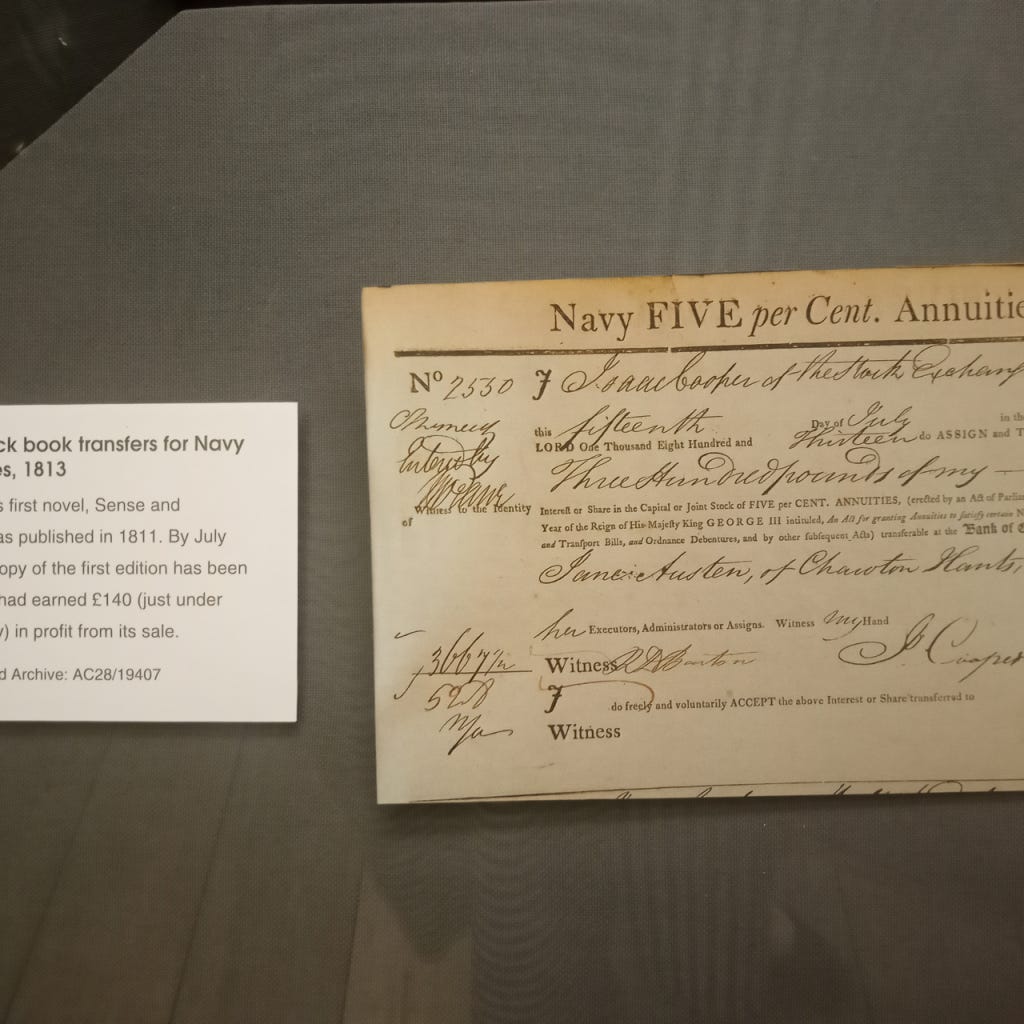 ck book transfers for Navy
es, 1813
s first novel, Sense and
as published in 1811. By July
opy of the first edition has been
had earned £140 (just under
y) in profit from its sale.
d Archive: AC28/19407
Navy FIVE per Cent. Annuitie
No 2530 I Isaac Cooper of the Stock Exchang
this fifteenth Day of July in the
LORD One Thousand Eight Hundred and Thirteen do ASSIGN and T
Three Hundred pounds of my
Interest or Share in the Capital or Joint Stock of FIVE per CENT. ANNUITIES, (erected by an Act of Parlia
Year of the Reign of His Majesty King GEORGE III intituled, An Act for granting Annuities to satisfy certain N
and Transport Bills, and Ordnance Debentures, and by other subsequent Acts) transferable at the Bank of E
Jane Austen, of Chawton Hants,
her Executors, Administrators or Assigns. Witness my Hand
Witness J Cooper
I do freely and voluntarily ACCEPT the above Interest or Share transferred to
Witness
Witness to the Identity
of
528